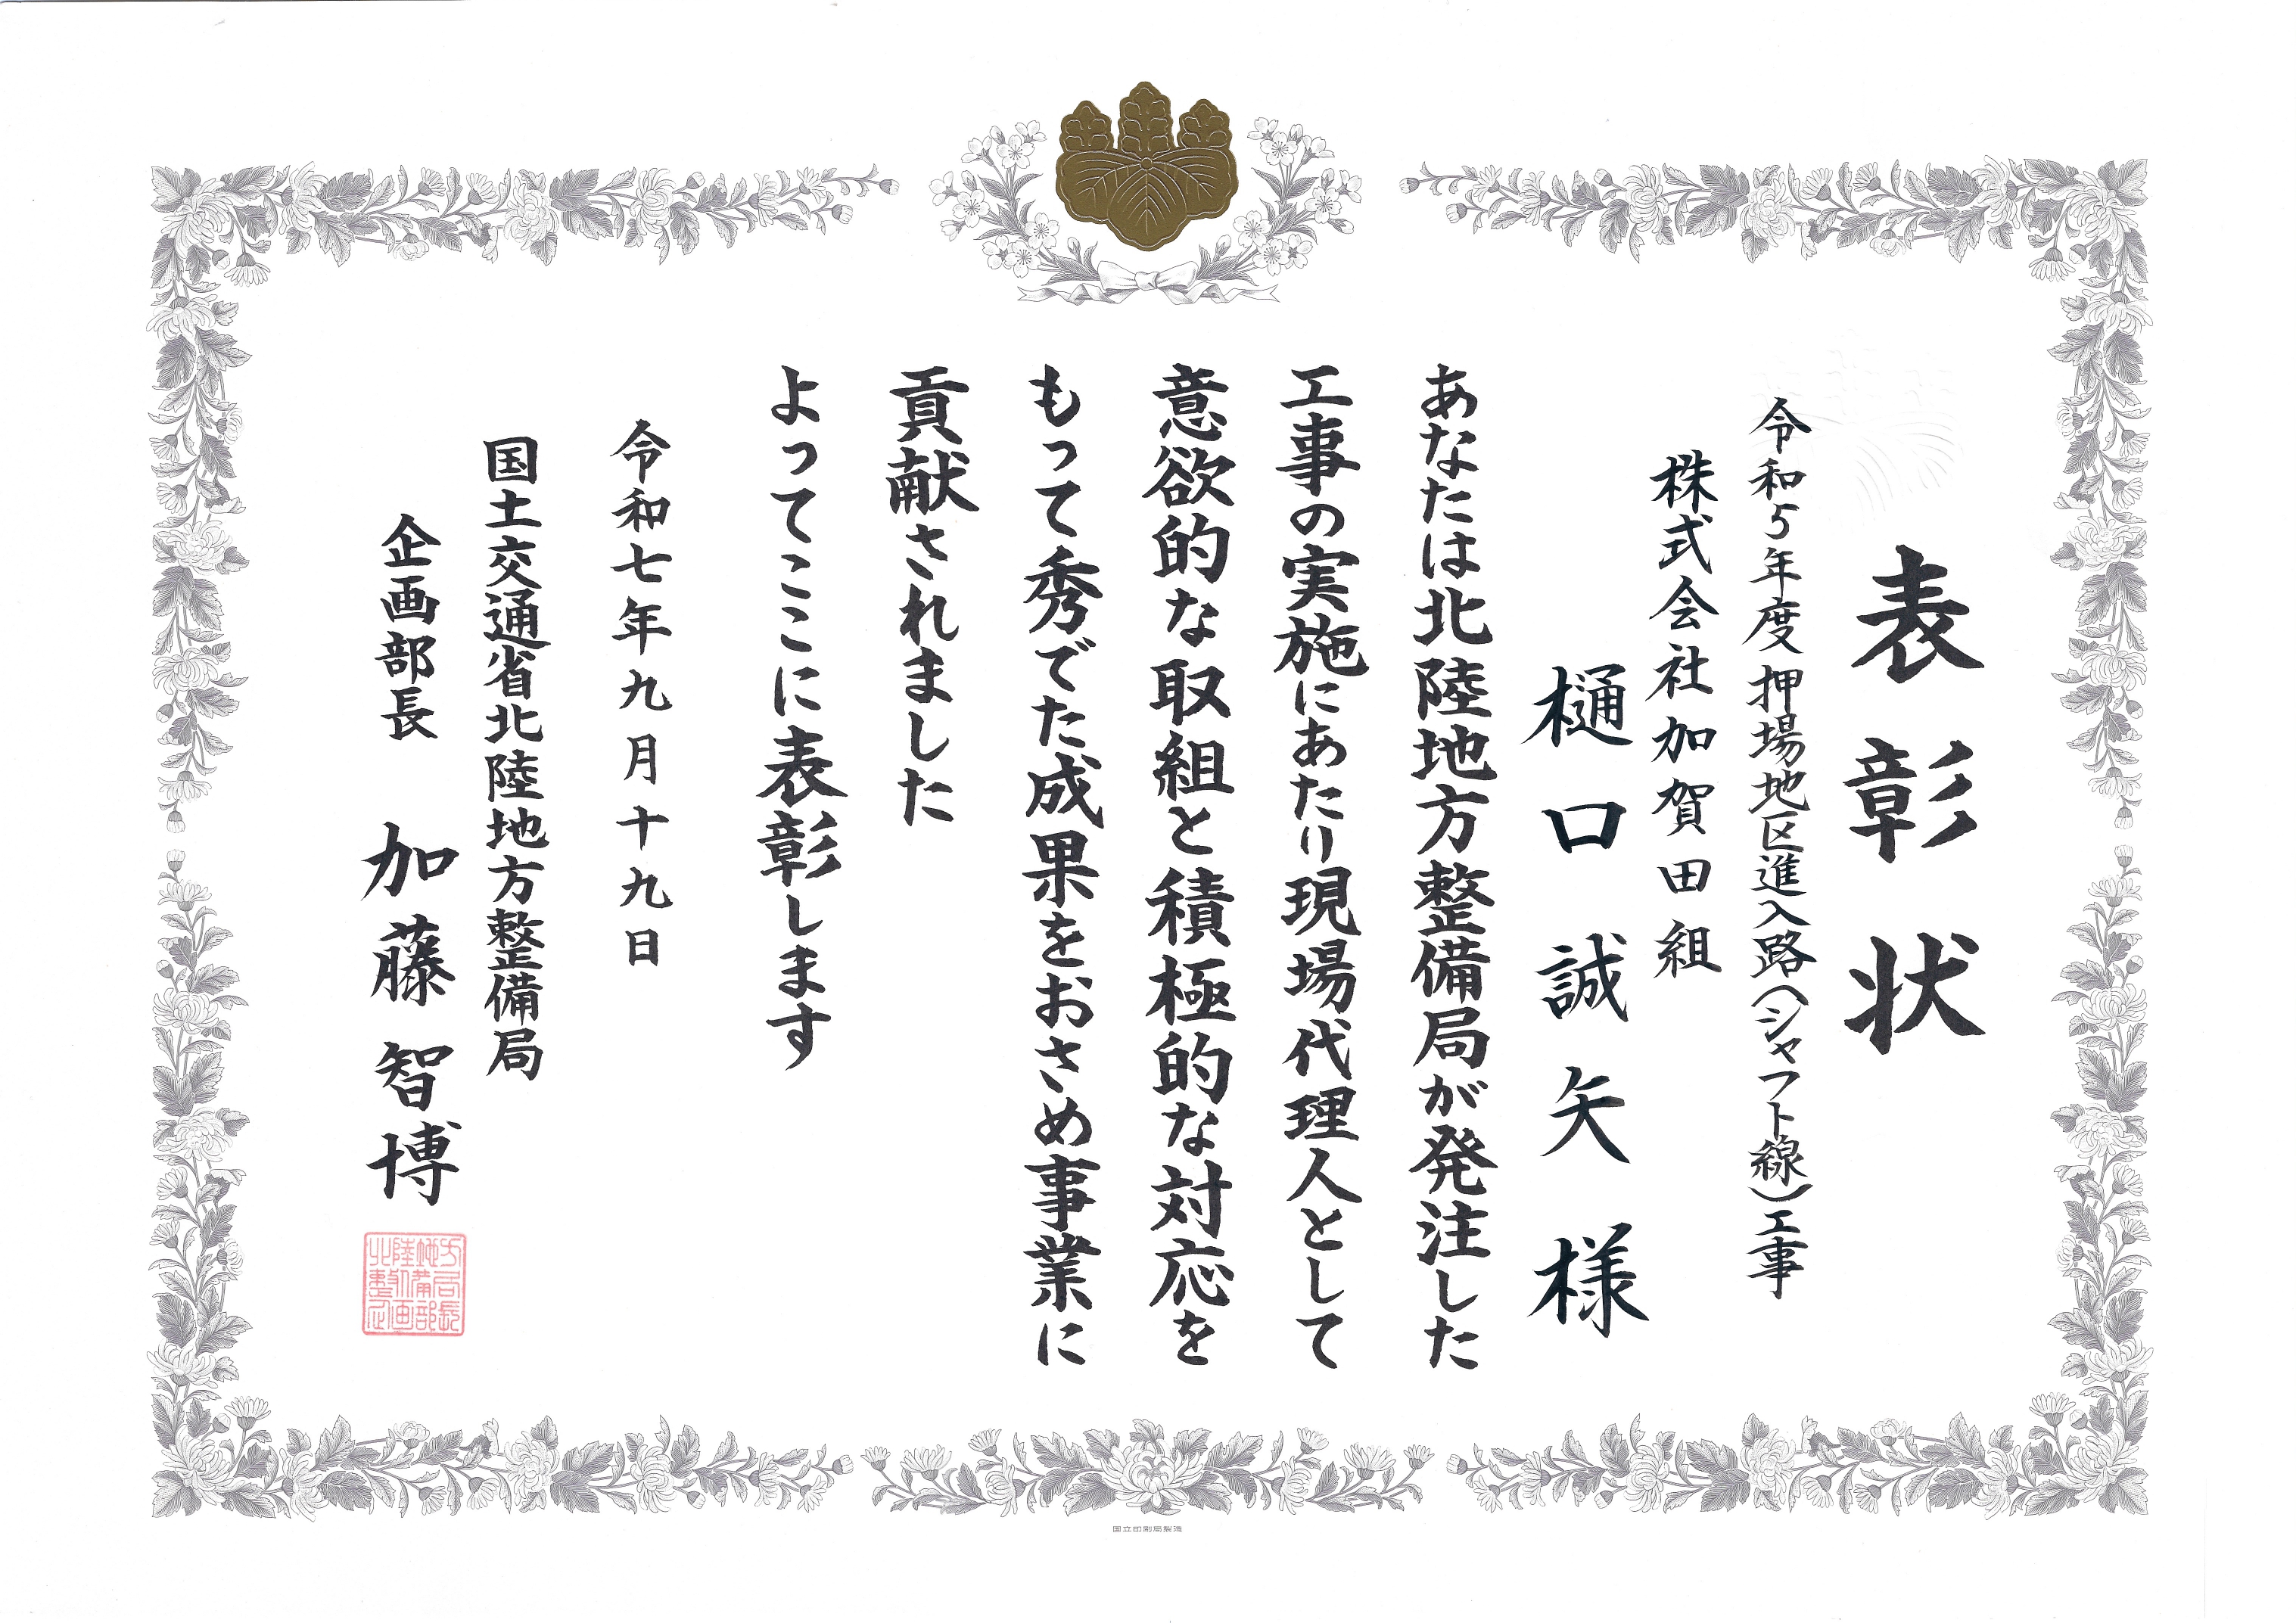 表彰状
令和5年度押場地区進入路(シャフト線)工事
株式会社加賀田組
樋口誠矢様
あなたは北陸地方整備局が発注した
工事の実施にあたり現場代理人として
意欲的な取組と積極的な対応を
もって秀でた成果をおさめ事業に
貢献されました
よってここに表彰します
令和七年九月十九日
国土交通省北陸地方整備局
企画部長 加藤智博
北陸地方
整備局
企画部長
国立印刷局製造